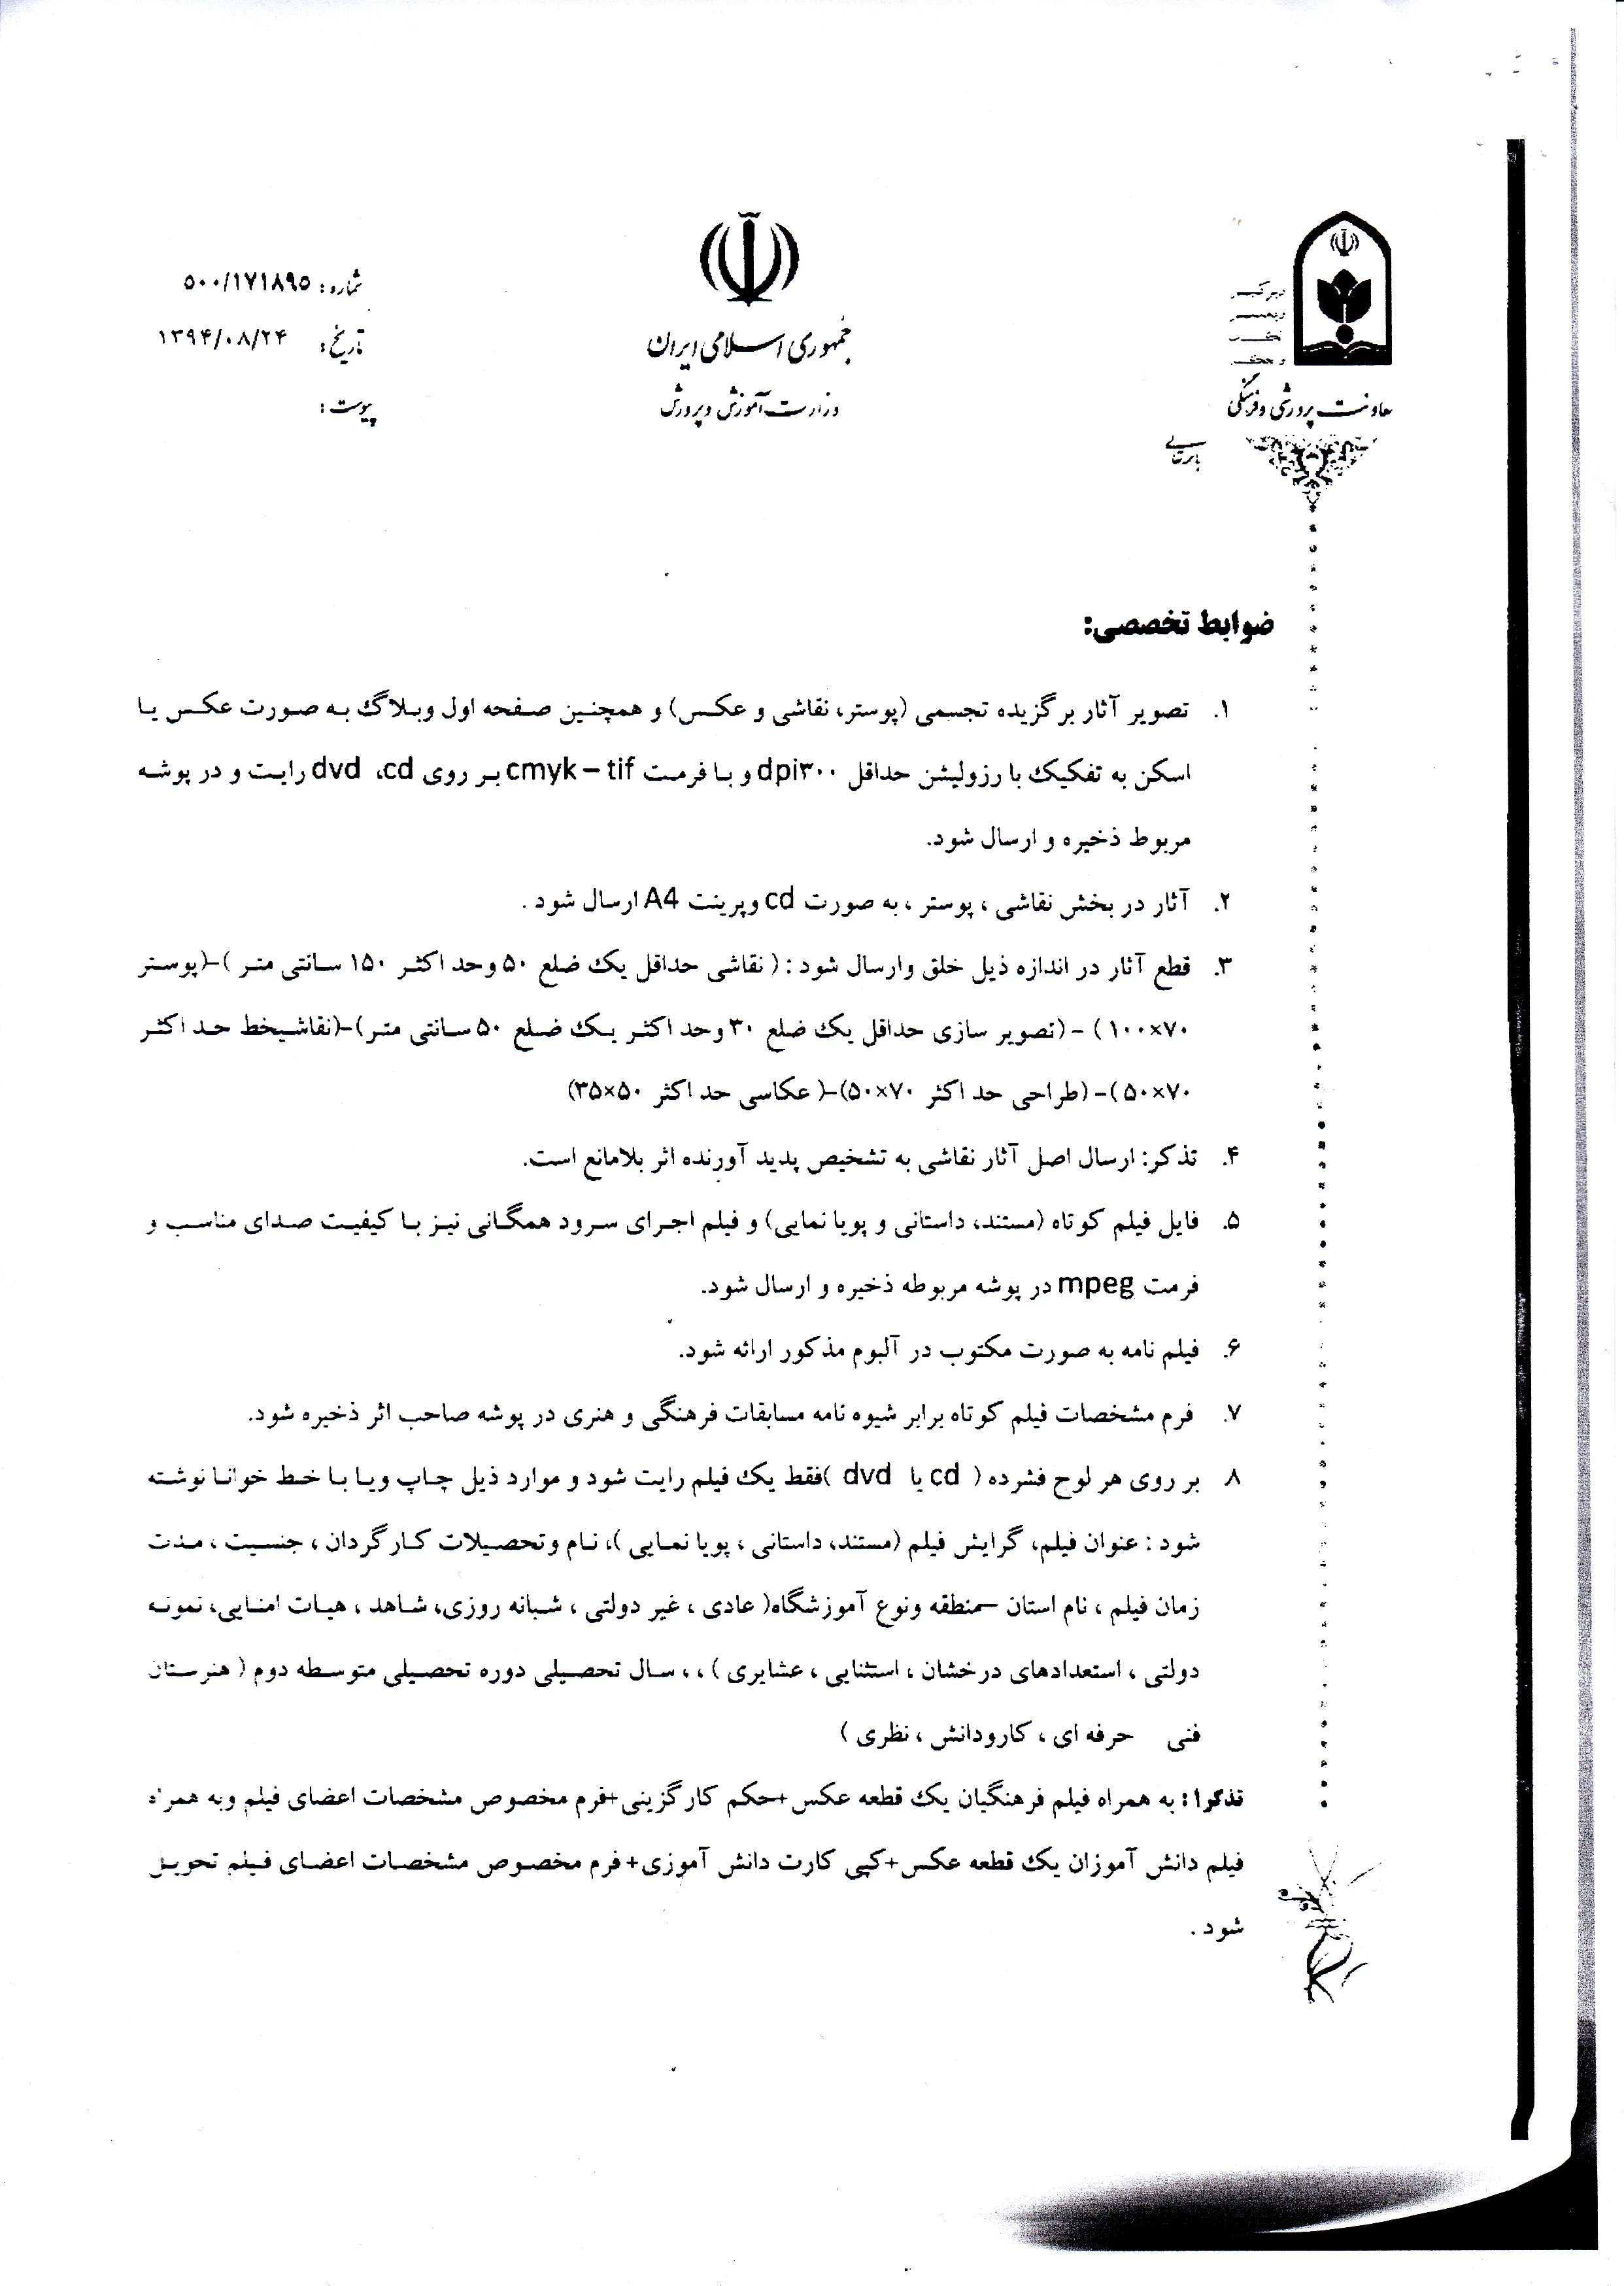 جمهوری اسلامی ایران
وزارت آموزش و پرورش
شماره: ۵۰۰/۱۷۱۸۹۵
تاریخ: ۱۳۹۴/۰۸/۲۴
پیوست:
معاونت پرورشی و فرهنگی
ضوابط تخصصی:
۱. تصویر آثار برگزیده تجسمی (پوستر، نقاشی و عکس) و همچنین صفحه اول وبلاگ به صورت عکس یا
اسکن به تفکیک با رزولیشن حداقل dpi۳۰۰ و با فرمت cmyk – tif بر روی dvd ،cd رایت و در پوشه
مربوط ذخیره و ارسال شود.
۲. آثار در بخش نقاشی ، پوستر ، به صورت cd وپرینت A4 ارسال شود .
۳. قطع آثار در اندازه ذیل خلق وارسال شود : ( نقاشی حداقل یک ضلع ۵۰ وحد اکثر ۱۵۰ سانتی متر )-(پوستر
۱۰۰×۷۰ ) - (تصویر سازی حداقل یک ضلع ۳۰ وحد اکثر یک ضلع ۵۰ سانتی متر)-(نقاشیخط حد اکثر
۵۰×۷۰ )- (طراحی حد اکثر ۵۰×۷۰)-( عکاسی حد اکثر ۳۵×۵۰)
۴. تذکر: ارسال اصل آثار نقاشی به تشخیص پدید آورنده اثر بلامانع است.
۵. فایل فیلم کوتاه (مستند، داستانی و پویا نمایی) و فیلم اجرای سرود همگانی نیز با کیفیت صدای مناسب و
فرمت mpeg در پوشه مربوطه ذخیره و ارسال شود.
۶. فیلم نامه به صورت مکتوب در آلبوم مذکور ارائه شود.
۷. فرم مشخصات فیلم کوتاه برابر شیوه نامه مسابقات فرهنگی و هنری در پوشه صاحب اثر ذخیره شود.
۸ بر روی هر لوح فشرده ( cd یا dvd )فقط یک فیلم رایت شود و موارد ذیل چاپ ویا با خط خوانا نوشته
شود : عنوان فیلم، گرایش فیلم (مستند، داستانی ، پویا نمایی )، نام وتحصیلات کارگردان ، جنسیت ، مدت
زمان فیلم ، نام استان –منطقه ونوع آموزشگاه( عادی ، غیر دولتی ، شبانه روزی، شاهد ، هیات امنایی، نمونه
دولتی ، استعدادهای درخشان ، استثنایی ، عشایری ) ، ، سال تحصیلی دوره تحصیلی متوسطه دوم ( هنرستان
فنی حرفه ای ، کارودانش ، نظری )
تذکر۱: به همراه فیلم فرهنگیان یک قطعه عکس+حکم کارگزینی+فرم مخصوص مشخصات اعضای فیلم وبه همراه
فیلم دانش آموزان یک قطعه عکس+کپی کارت دانش آموزی+فرم مخصوص مشخصات اعضای فیلم تحویل
شود .